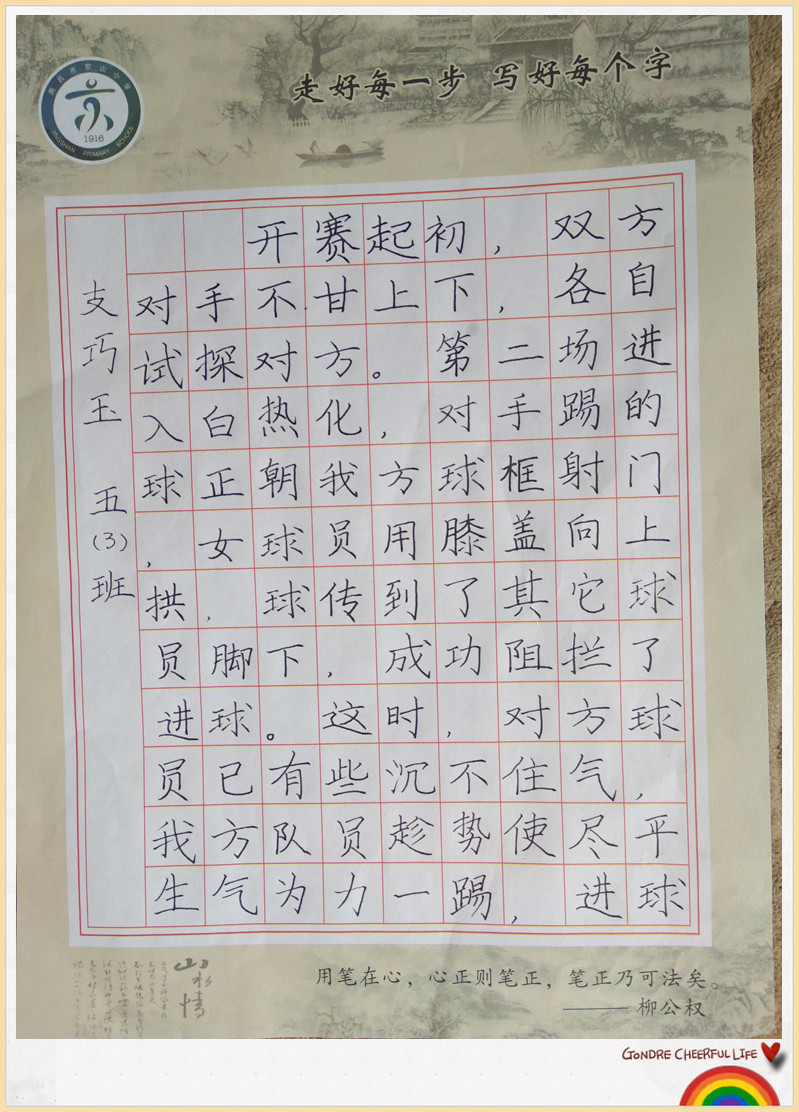 南昌市京山小学
1916
JINGSHAN PRIMARY SCHOOL
走好每一步 写好每个字
开赛起初，双方
对手不甘上下，各自
试探对方。第二场进
入白热化，对手踢的
球正朝我方球框射门
，女球员用膝盖向上
拱，球传到了其它球
员脚下，成功阻拦了
进球。这时，对方球
员已有些沉不住气，
我方队员趁势使尽平
生气为力一踢，进球
支巧玉 五(3)班
山水情
用笔在心，心正则笔正，笔正乃可法矣。
——柳公权
GONDRE CHEERFUL LIFE